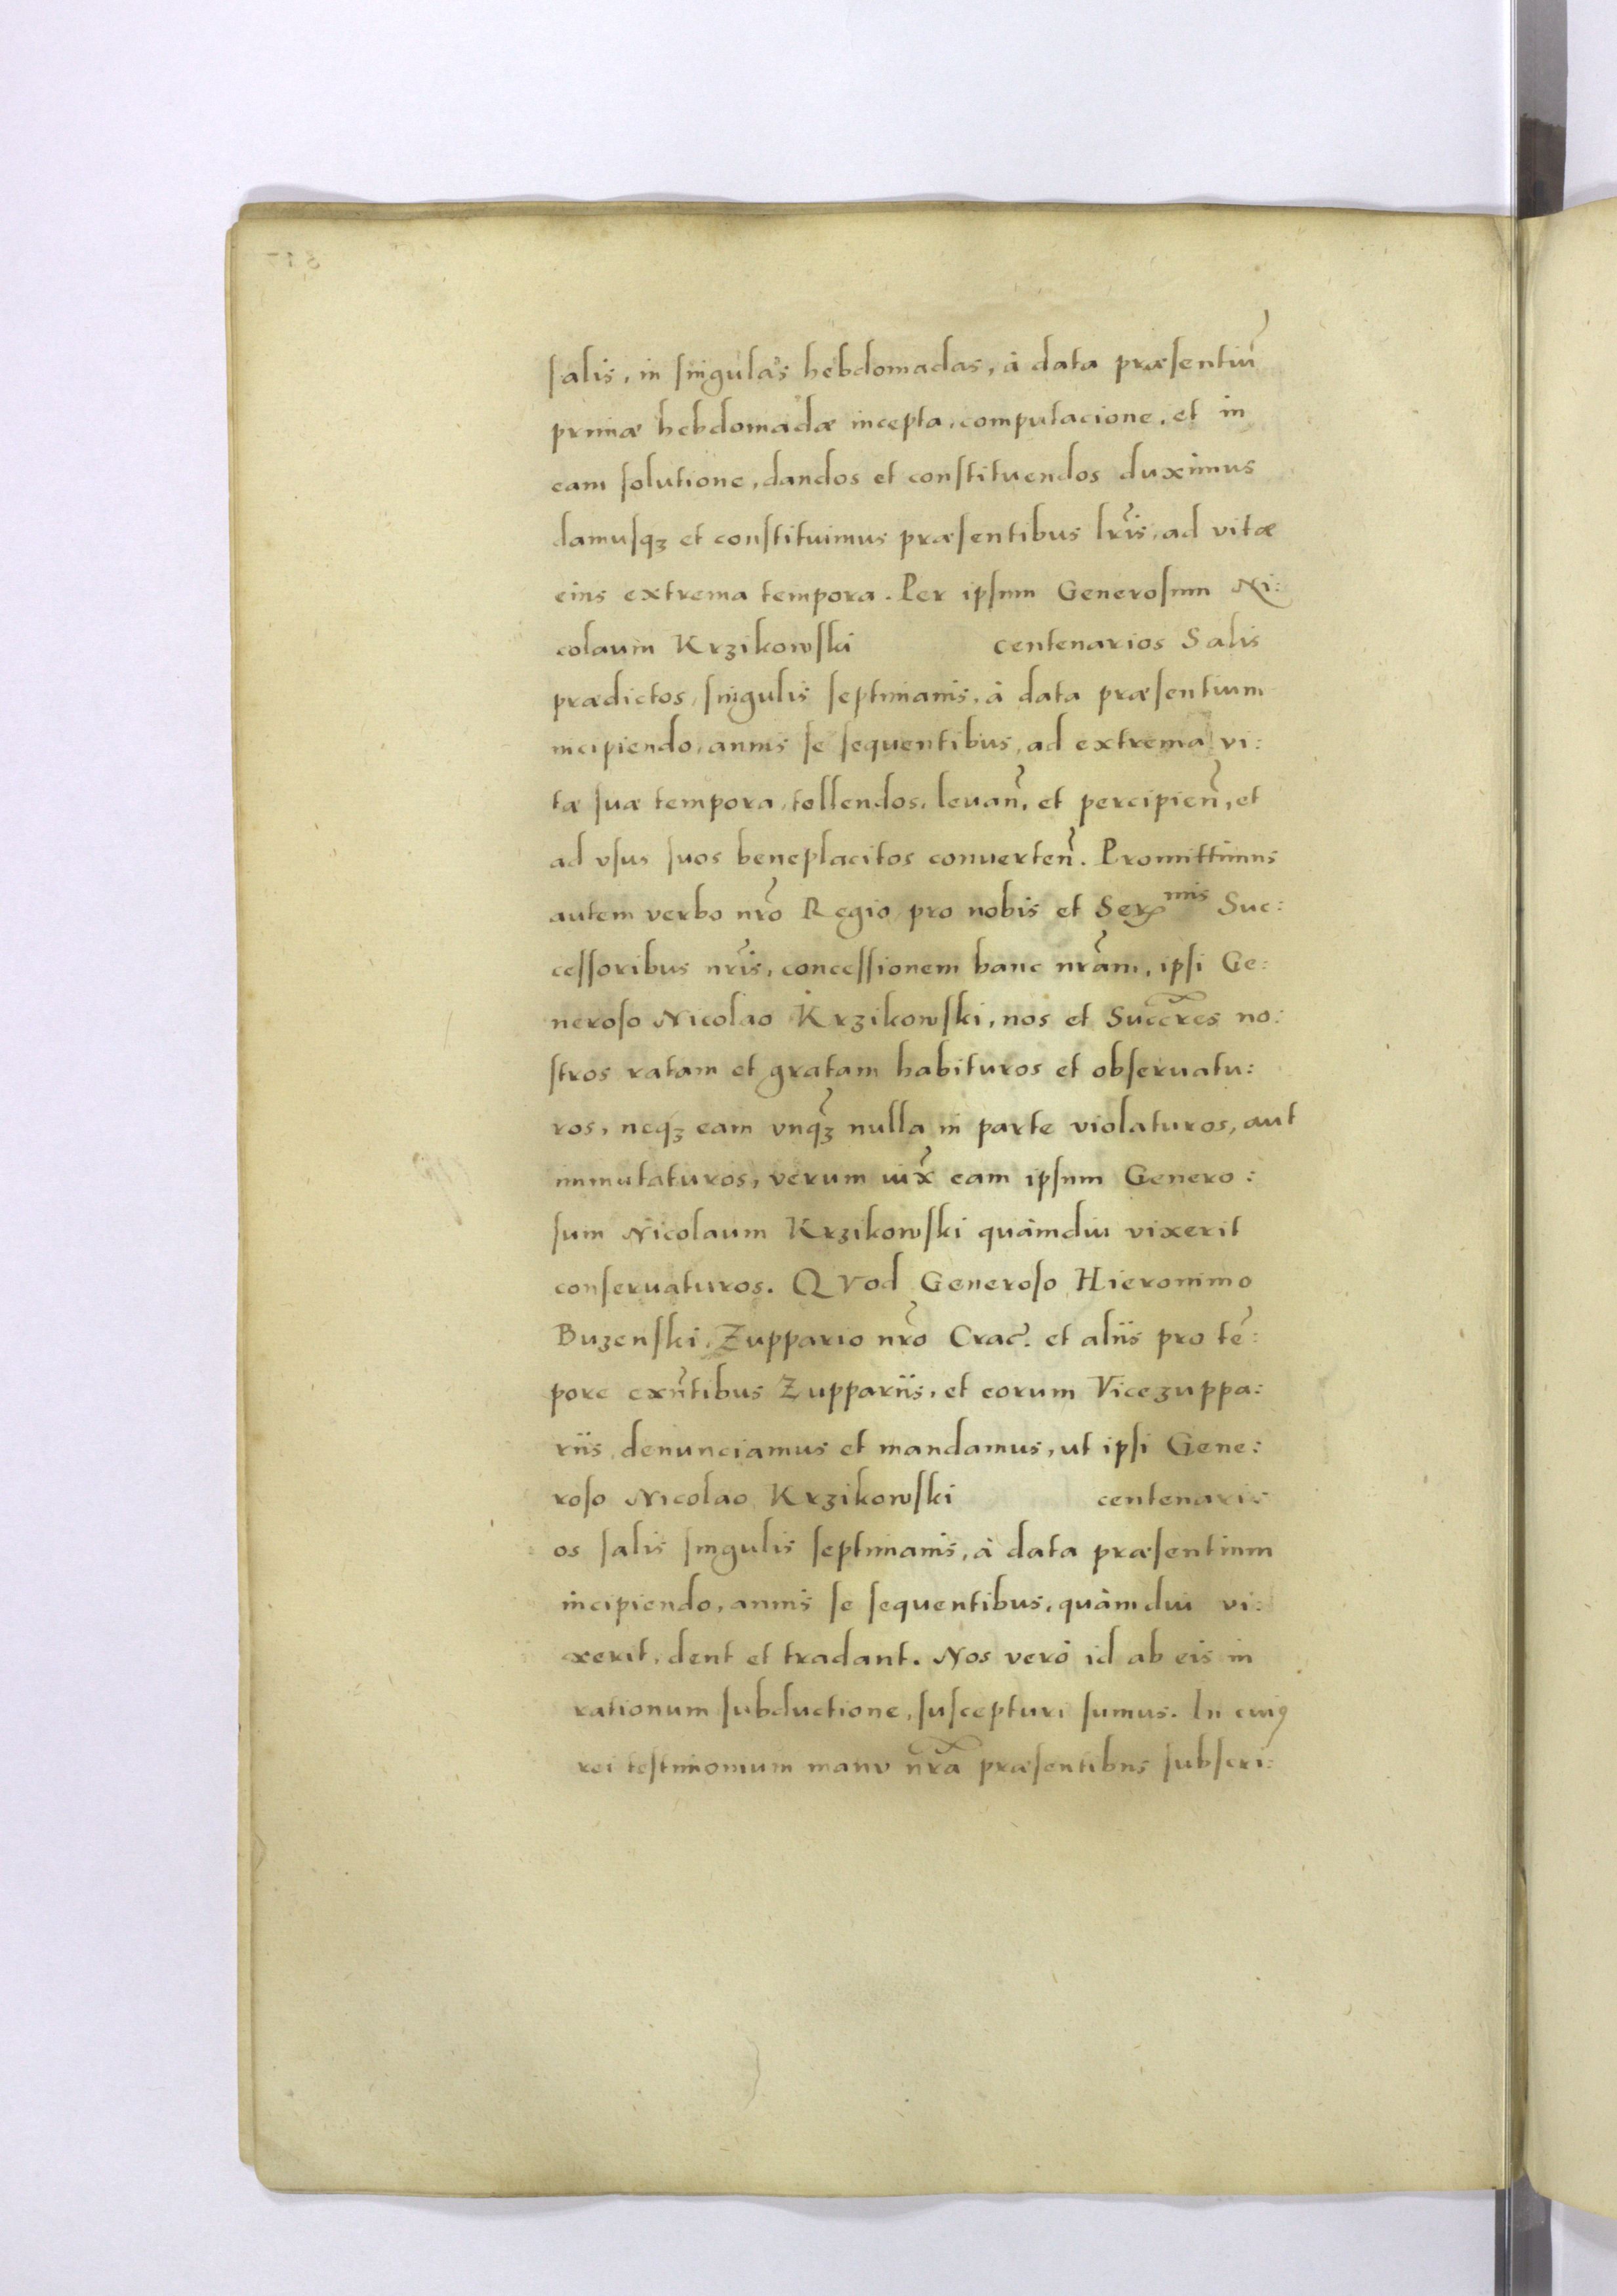 salis, in singulas hebdomadas, à data præsentiũ
primæ hebdomadæ incepta, computacione, et in
eam solutione, dandos et constituendos duximus
damusqꝫ et constituimus præsentibus lr̃is, ad vitæ
eius extrema tempora. Per ipsum Generosum Ni:
colaum Krzikowski centenarios Salis
prædictos, singulis septimanis, à data præsentium
incipiendo, annis se sequentibus, ad extrema vi:
tæ suæ tempora, tollendos, leuañ, et percipieñ, et
ad vsus suos beneplacitos conuerteñ. Promittimus
autem verbo nrõ Regio, pro nobis et Ser^mis Suc:
cessoribus nr̃is, concessionem hanc nrãm, ipsi Ge:
neroso Nicolao Krzikowski, nos et Succr̃es no:
stros ratam et gratam habituros et obseruatu:
ros, neqꝫ eam vnq̃ꝫ nulla in parte violaturos, aut
immutaturos, verum iux̃ eam ipsum Genero:
sum Nicolaum Krzikowski quàmdiu vixerit
conseruaturos. QVod Generoso Hieronimo
Buzenski, Zuppario nrõ Crac̃. et aliis pro tẽ:
pore exñtibus Zuppariis, et eorum Vicezuppa:
riis, denunciamus et mandamus, ut ipsi Gene:
roso Nicolao Krzikowski centenari:
os salis singulis septimanis, à data præsentium
incipiendo, annis se sequentibus, quàmdiu vi:
xerit, dent et tradant. Nos verò id ab eis in
rationum subductione, suscepturi sumus. In cuiꝯ
rei testimonium manv nrã præsentibus subscri: